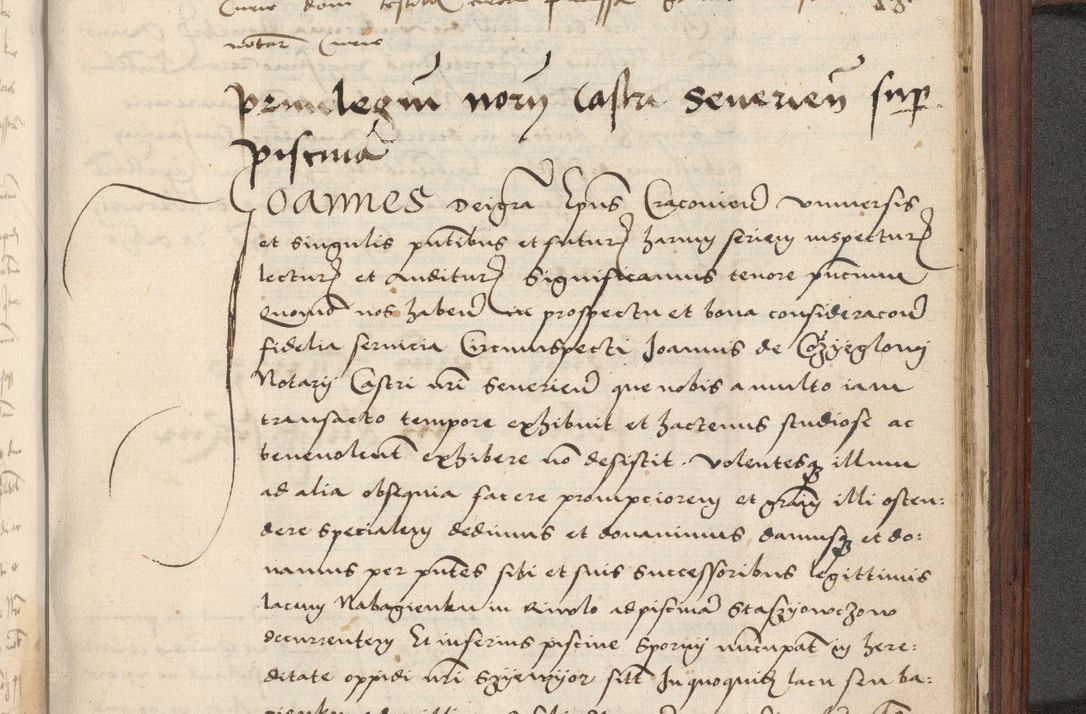 notar Curie
privilegiu notarij Castri Severien sup
piscina
Joannes dei gra Epus Cracovien universis
et singulis pntibus et futur harum seriem inspectur
lectur et auditur Significamus tenore pncium
Quomo nos haben in prospectu et bona consideracon
fidelia servicia Circumspecti Joannis de
Notarij Castri nri Severien que nobis a multo iam
transacto tempore exhibuit et hactenus studiose ac
benevolent exhibere no desistit. Volentesq illum
ad alia obsequia facere prompciorem et gram illi osten:
dere specialem dedimus et donavimus damusq et do:
namus per pntes sibi et suis successoribus legittimis
lacum Nabagienku in Rivolo ad piscina Staszyowczow
decurrentem Et inferius piscine Spornij nuncupat in here:
ditate oppidi nri sitt In quoquid lacu seu ba: